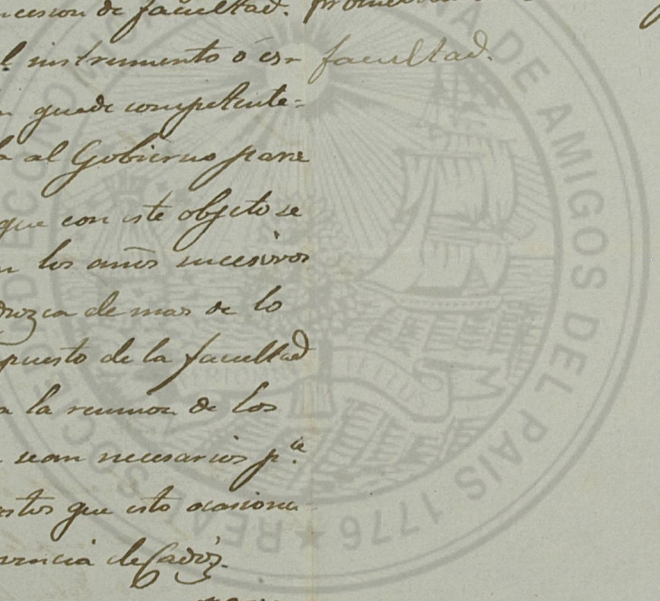 ncesion de facultad.
l instrumento ó es= facultad.
n quede competente=
a al Gobierno para
que con este objeto se
n los años sucesivos
drozca de mas de lo
puesto de la facultad
a la reunion de los
sean necesarios p.ª
stos que esto ocasiona
vincia de Cadiz.
REAL SOC ECONOMI NA DE AMIGOS DEL PAIS 1776